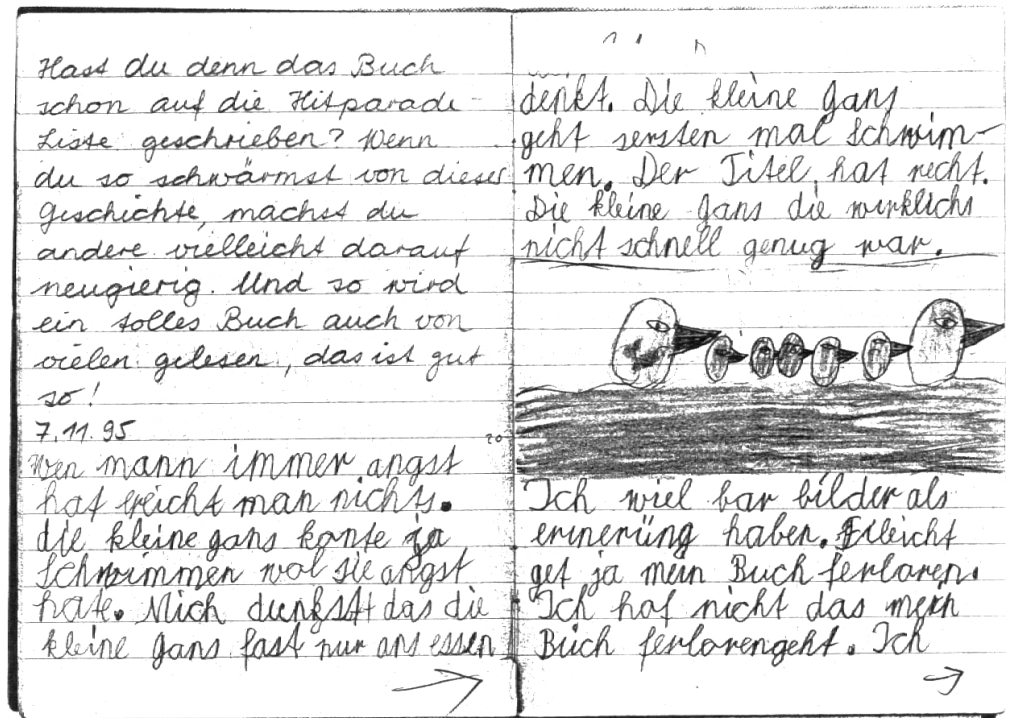 Hast du denn das Buch
schon auf die Hitparade-
Liste geschrieben? Wenn
du so schwärmst von dieser
Geschichte, machst du
andere vielleicht darauf
neugierig. Und so wird
ein tolles Buch auch von
vielen gelesen, das ist gut
so!
7.11.95
Wen mann immer angst
hat ereicht man nichts.
die kleine gans konte ja
Schwimmen wol sie angst
hate. Mich dunkst das die
kleine gans fast nur ans essen
denkt. Die kleine Gans
geht sersten mal Schwim-
men. Der Titel hat recht.
Die kleine Gans die wirklich
nicht schnell genug war.
20
Ich wiel bar bilder als
erinerüng haben. Filleicht
get ja mein Buch ferloren.
Ich hof nicht das mein
Buch ferlorengeht. Ich